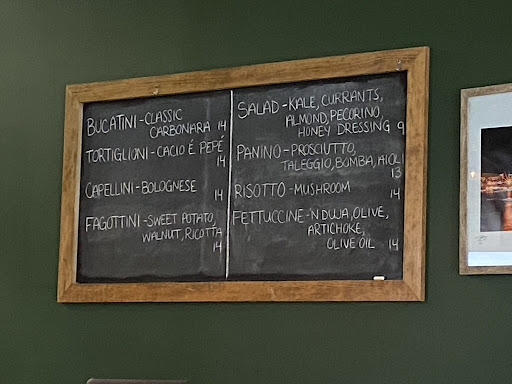 BUCATINI - CLASSIC
CARBONARA 14
TORTIGLIONI - CACIO É PEPÉ
14
CAPELLINI - BOLOGNESE 14
FAGOTTINI - SWEET POTATO,
WALNUT, RICOTTA
14
SALAD - KALE, CURRANTS,
ALMOND, PECORINO,
HONEY DRESSING 9
PANINO - PROSCIUTTO,
TALEGGIO, BOMBA, AIOLI
13
RISOTTO - MUSHROOM 14
FETTUCCINE - NDUJA, OLIVE,
ARTICHOKE,
OLIVE OIL 14